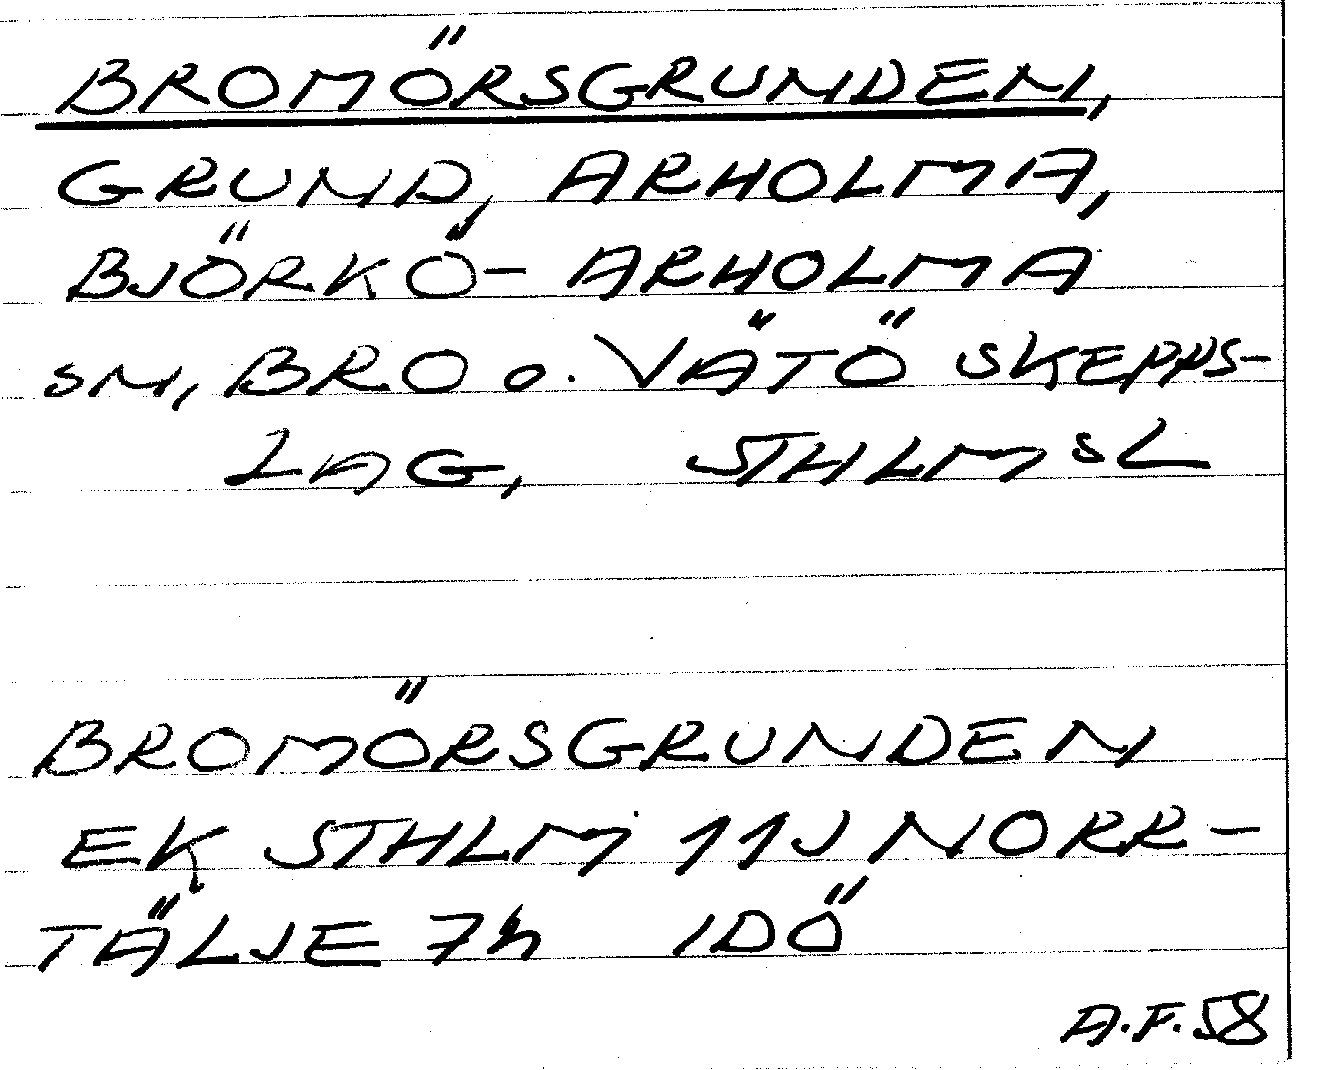 BROMÖRSGRUNDEN,
GRUND, ARHOLMA,
BJÖRKÖ-ARHOLMA
SN, BRO O. VÄTÖ SKEPPS-
LAG, STHLMSL
BROMÖRSGRUNDEN
EK STHLM 11J NORR-
TÄLJE 7h IDÖ
A.F.58